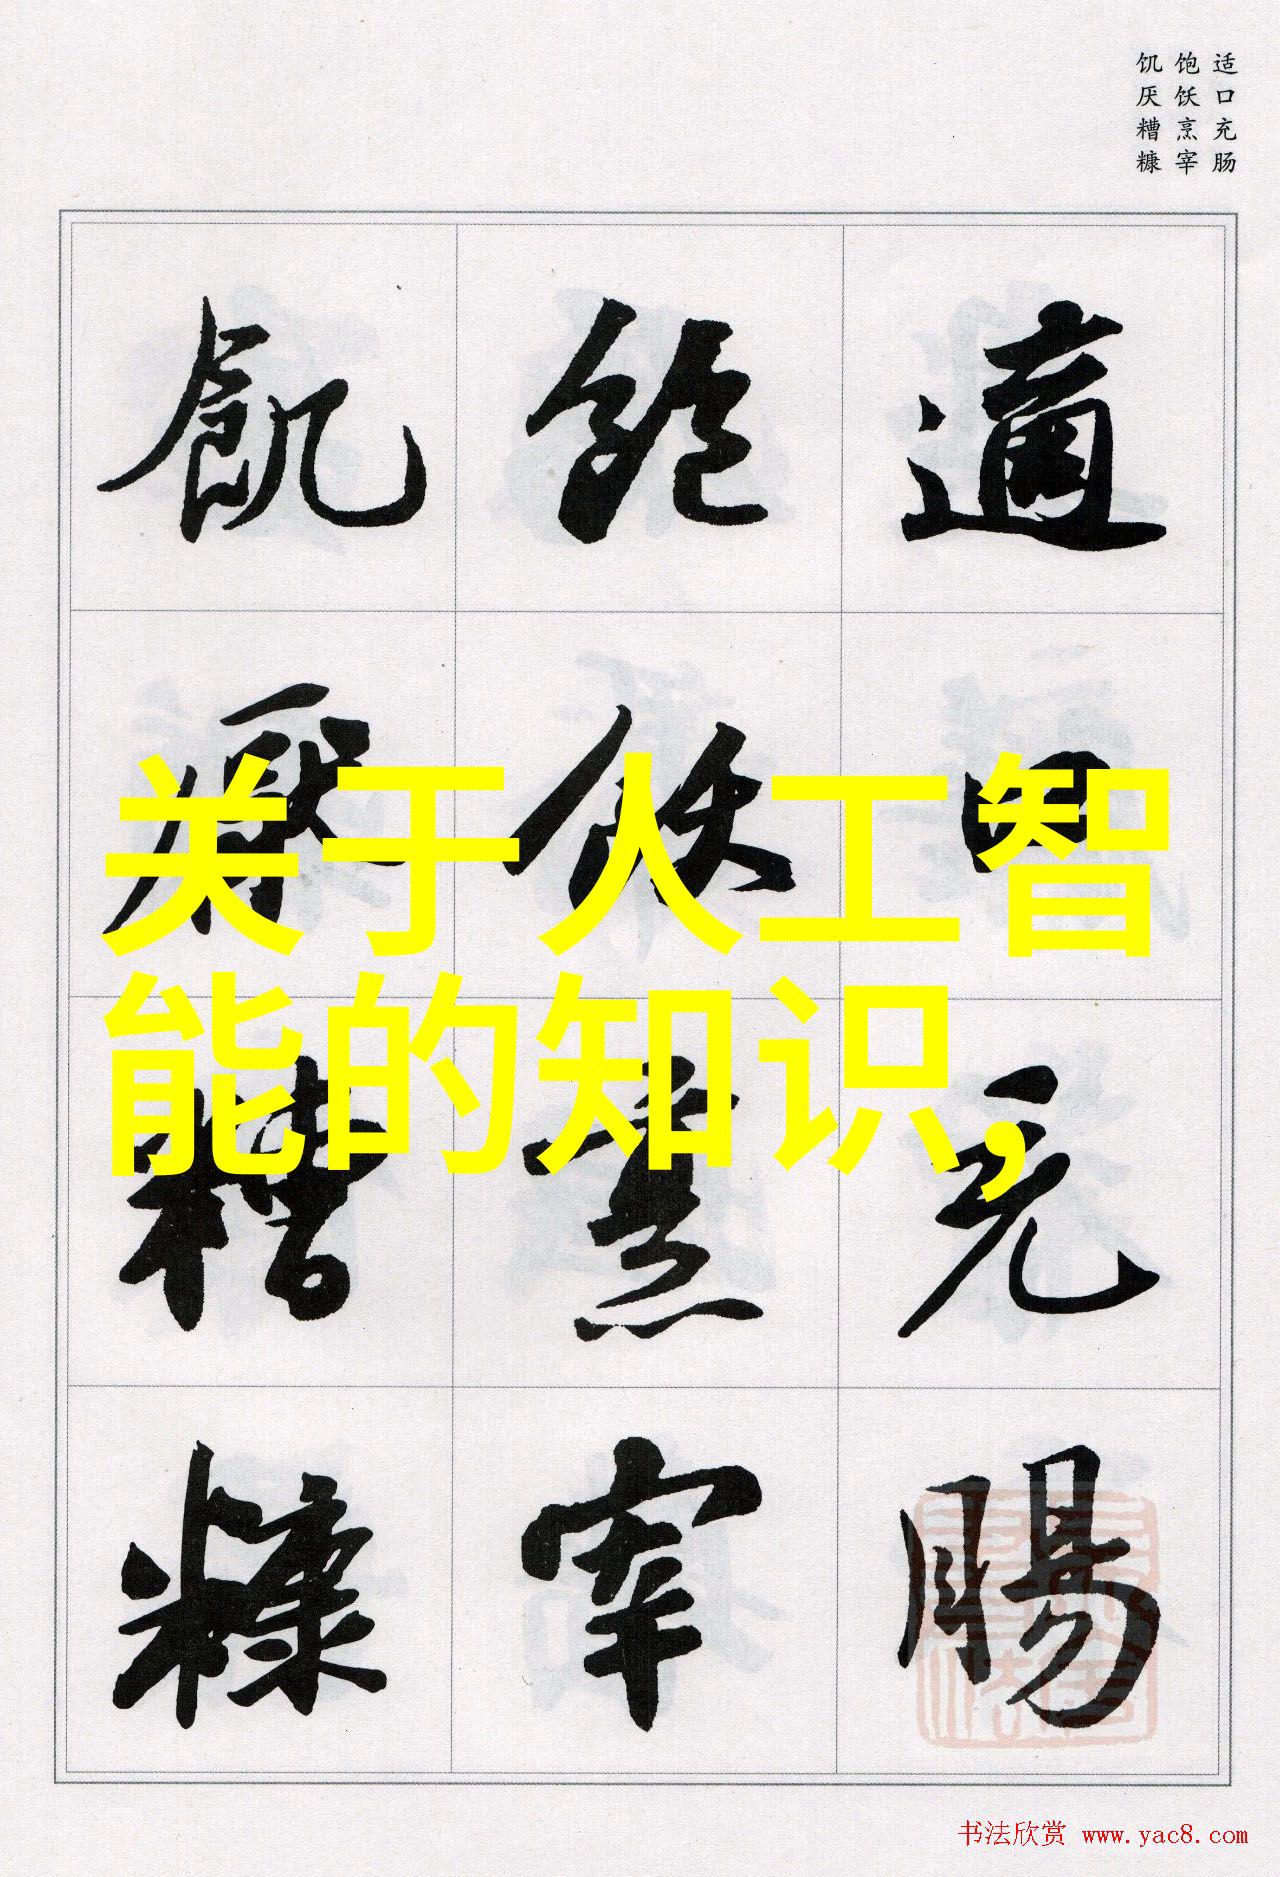 适口充肠
饱饫烹宰
饥厌糟糠
適口充腸
飽飫烹宰
飢厭糟糠
关于人工智
能的知识,
书法欣赏 www.yac8.com